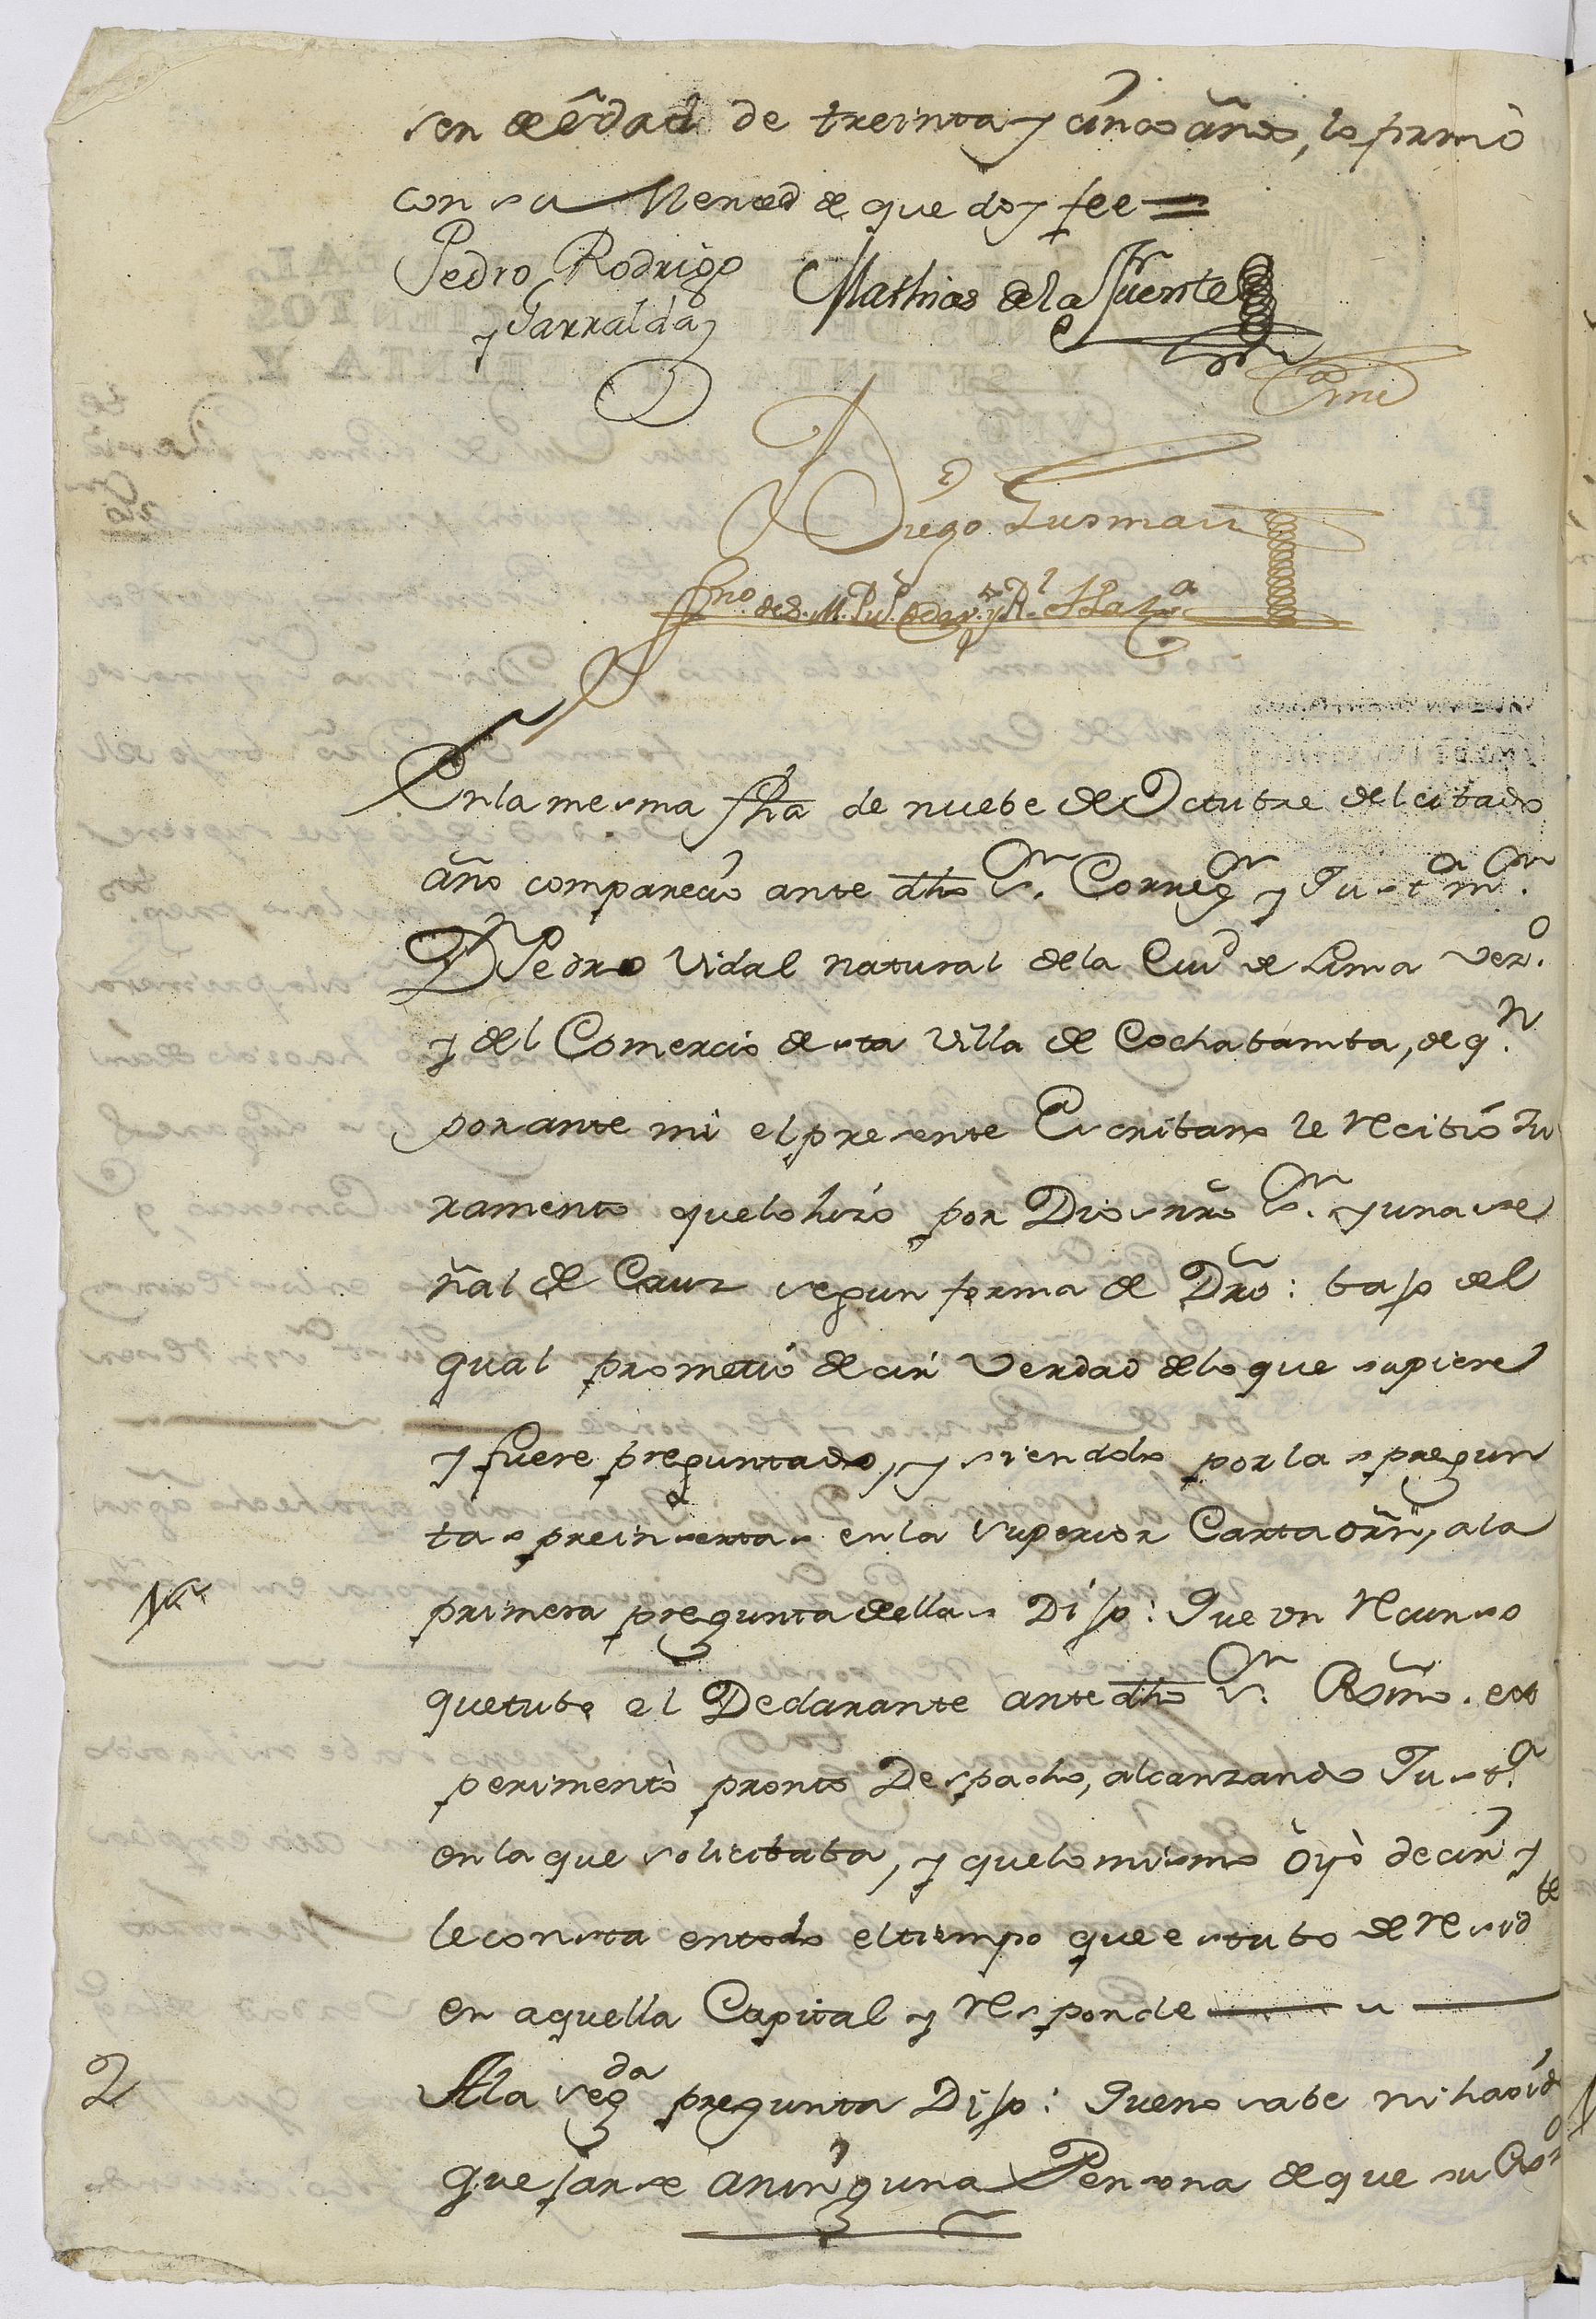 ser de êdad de treinta y cinco años, lo firmò
con su Merced de que doy fee =
Pedro Rodrigo
y Garralda
Mathias de la Fuente
Ante mi
Diego Gusman
Sno. de S. M. Pu.co
En la mesma fha de nuebe de Octubre del citado
año comparecio ante dho Sr. Correg.r y Just.a mr.
Dn Pedro Vidal natural de la Ciud de Lima vez.o
y del Comercio desta Villa de Cochabamba, de q.n
por ante mi el presente Escribano le recibiò Ju
ramento que lo hizo por Dios nro Sr. y una se
ñal de Cruz segun forma de Dro: bajo del
qual prometió decir verdad de lo que supiere
y fuere preguntado, y siendolo por las pregun
tas preinsertas en la Superior Carta orñ, a la
1a primera pregunta dellas Dijo: Que en recurso
que tubo el Declarante ante dho Sr. Exmo. ex
perimentò pronto Despacho, alcanzando Just.a
en la que solicitaba, y que lo mismo òyò decir y
le consta en todo el tiempo que estubo de resid.te
en aquella Capital y responde
2 A la seg.da pregunta Dijo: Que no sabe ni ha oido
quejarse a ninguna Persona de que su